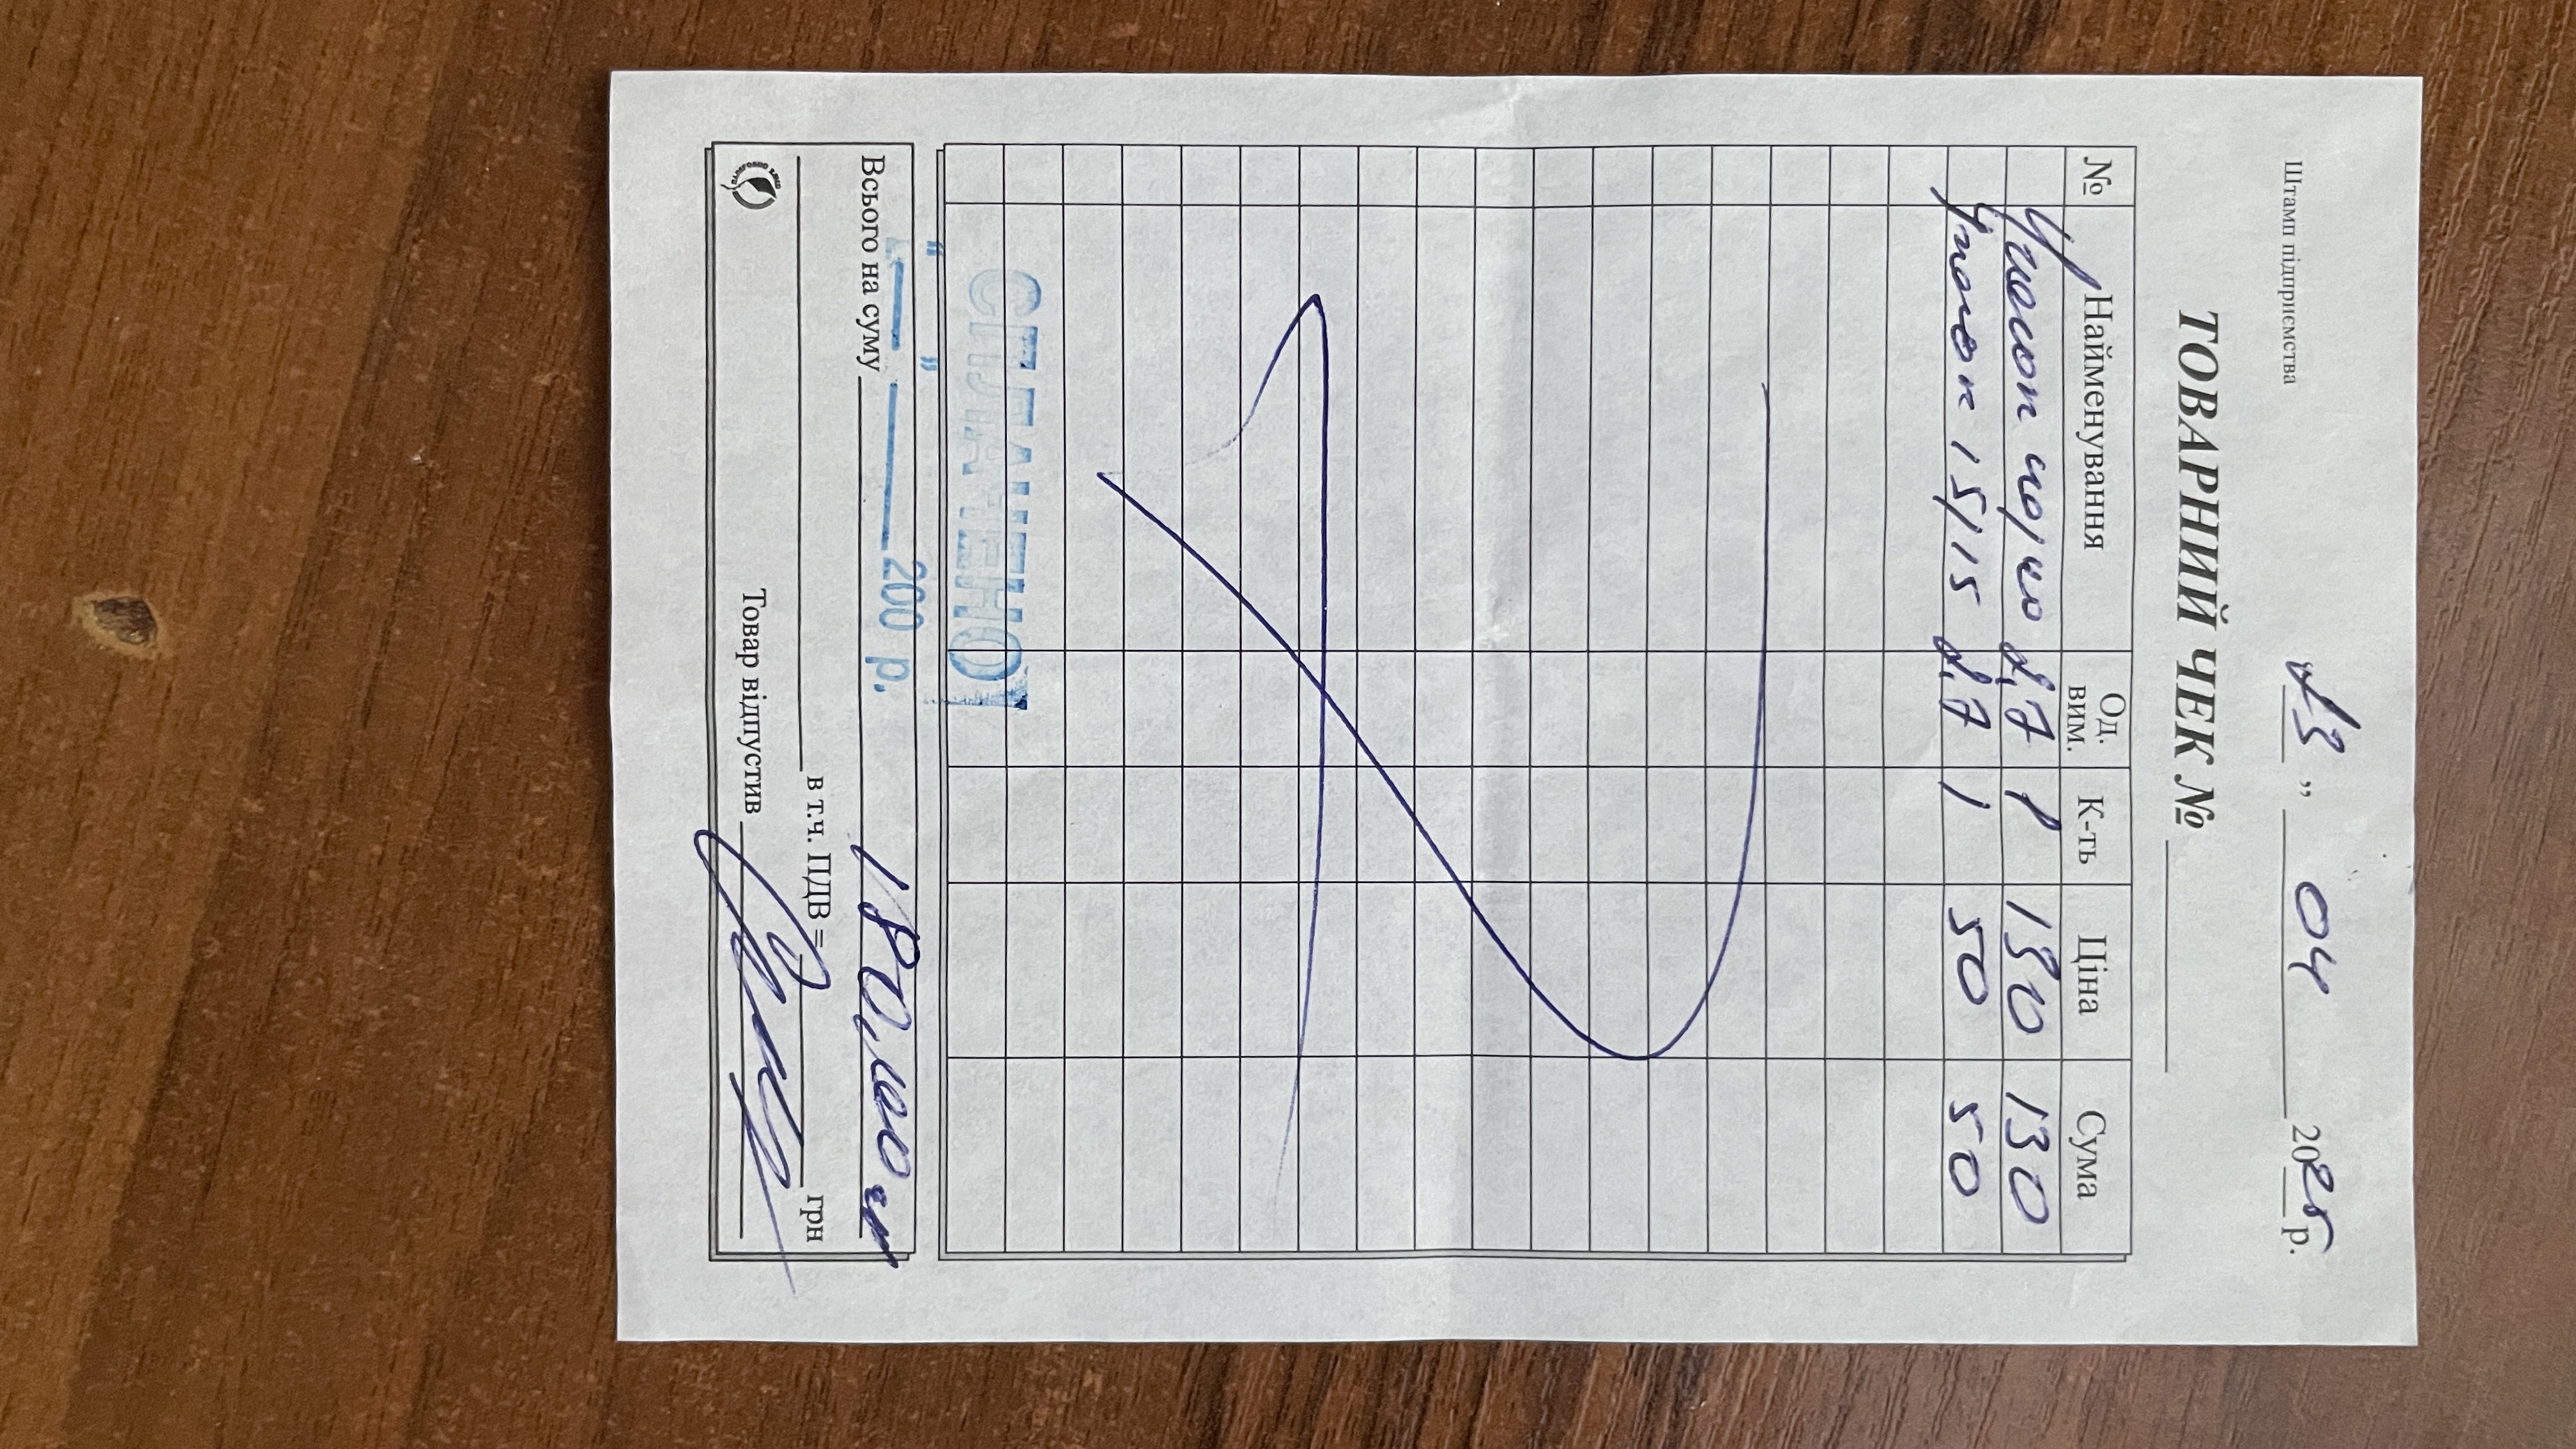 Штамп підприємства
23 " 04 2025 р.
ТОВАРНИЙ ЧЕК №
№ Найменування Од. вим. К-ть Ціна Сума
Уголок 40/40 2,7 1 130 130
Уголок 15/15 2,7 1 50 50
СПЛАЧЕНО
" " 200 р.
Всього на суму 180,00
в т.ч. ПДВ = грн
Товар відпустив